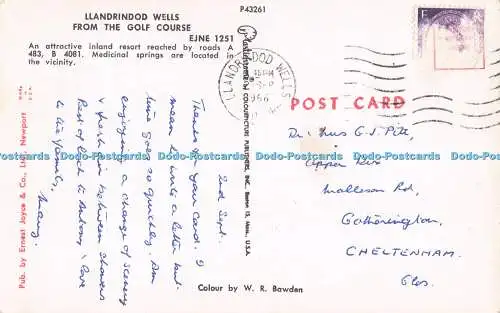 LLANDRINDOD WELLS
FROM THE GOLF COURSE
EJNE 1251
An attractive inland resort reached by roads A
483, B 4081. Medicinal springs are located in
the vicinity.
P43261
Pub. by Ernest Joyce & Co., Ltd., Newport
2nd Sept.
Thanks for your card. I
mean to write a letter but
time goes so quickly. Am
enjoying a change of scenery
& fresh air between showers
Best of luck to Antony & love
to the family,
COLOURPICTURE PUBLISHERS, INC., Boston 15, Mass., U.S.A.
LLANDRINDOD WELLS
SEP
1966
POST CARD
Dr & Mrs G. J. Pitt,
Upper Rex
Malleson Rd,
Gotherington,
CHELTENHAM.
Glos.
Colour by W. R. Bawden
Dodo-Postcards Dodo-Postcards Dodo-Postcards Dodo-Postcards Dodo-Postcards Dodo-Postcards